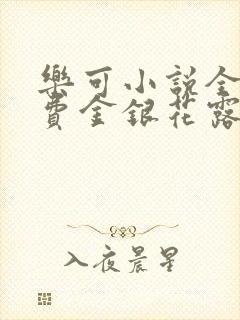 樂可小說全
費金銀花露
入夜晨星